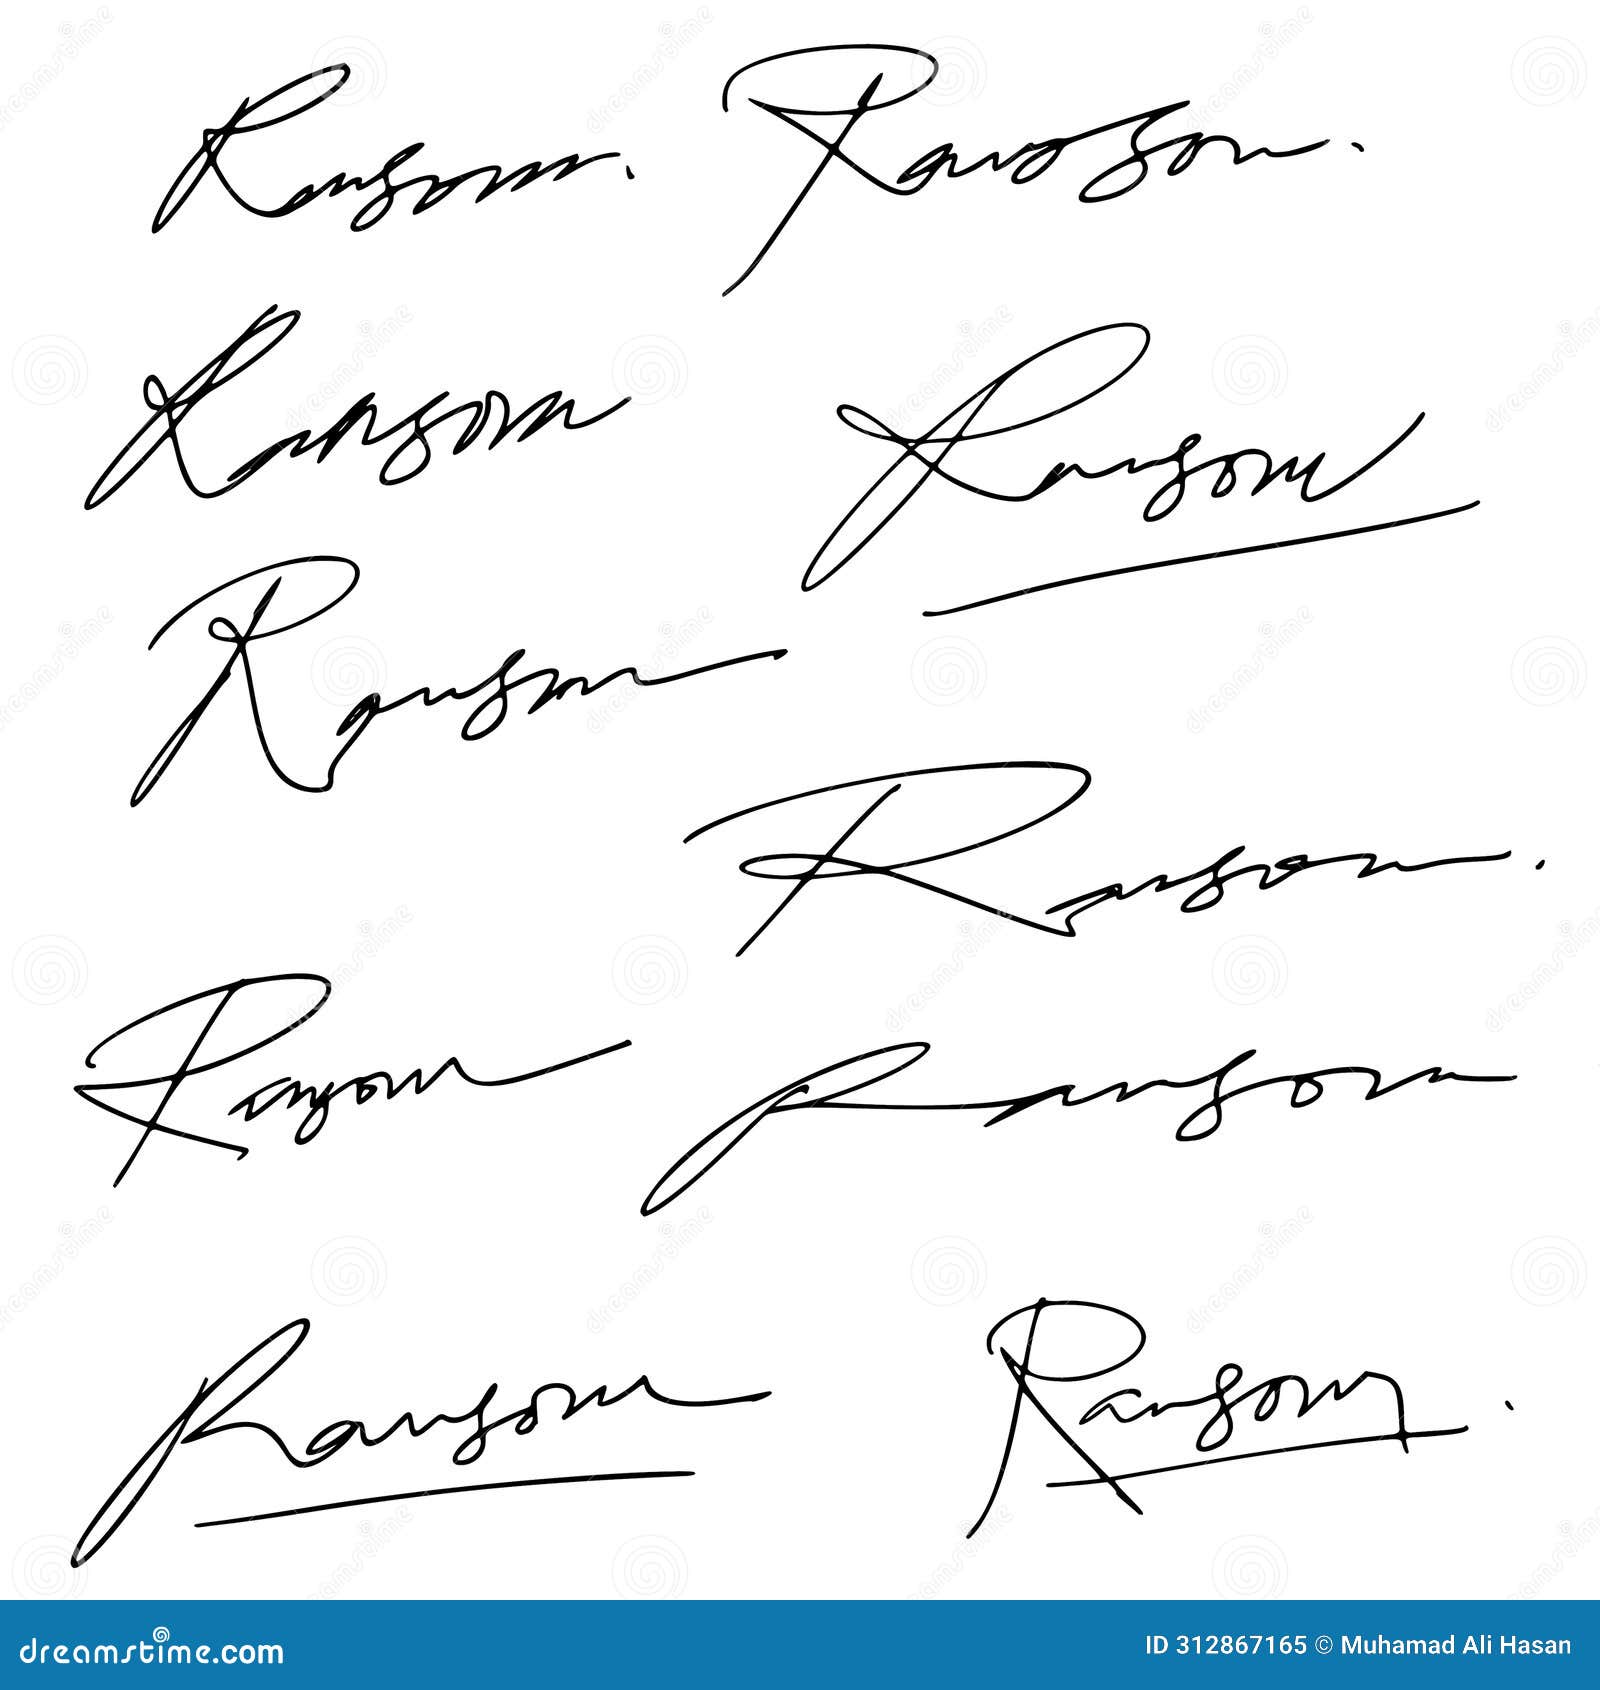 Ransom.
Ranson.
Ransom
Ransom
Ransom
Ransom.
Ransom
Ransom
Ransom
Ransom.
dreamstime.com
ID 312867165 © Muhamad Ali Hasan